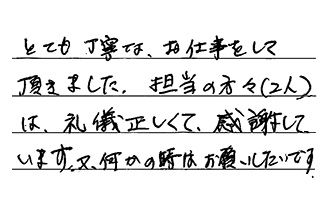 とても丁寧な、お仕事をして
頂きました。担当の方々(2人)
は、礼儀正しくて、感謝して
います。又、何かの時はお願いしたいです。